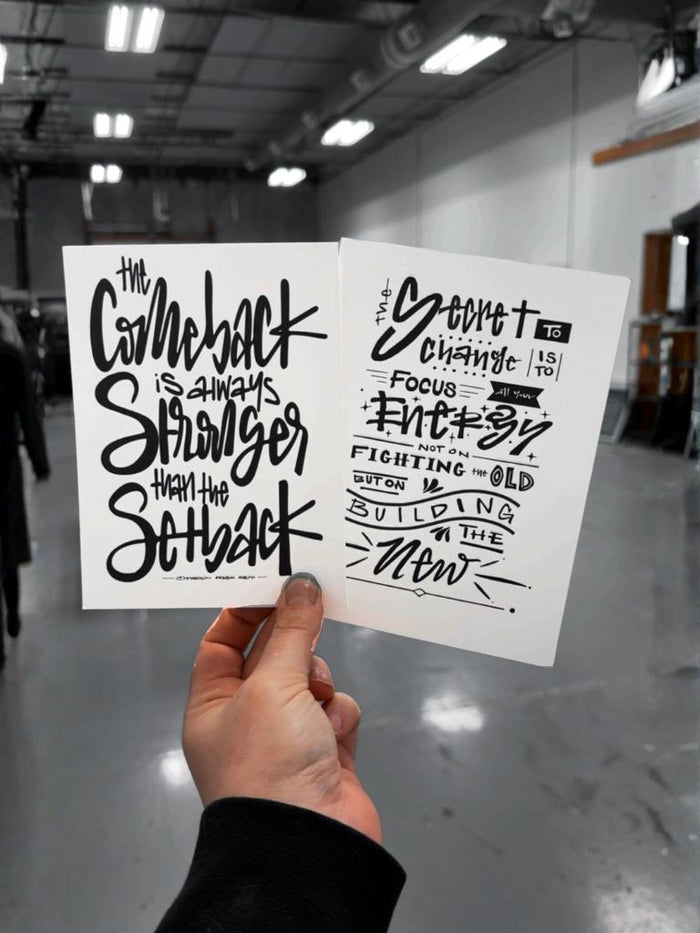 the
Comeback
is always
Stronger
than the
Setback
the
Secret TO
change IS TO
FOCUS all your
ENERGY
NOT ON
FIGHTING the OLD
BUT ON
BUILDING
THE
New